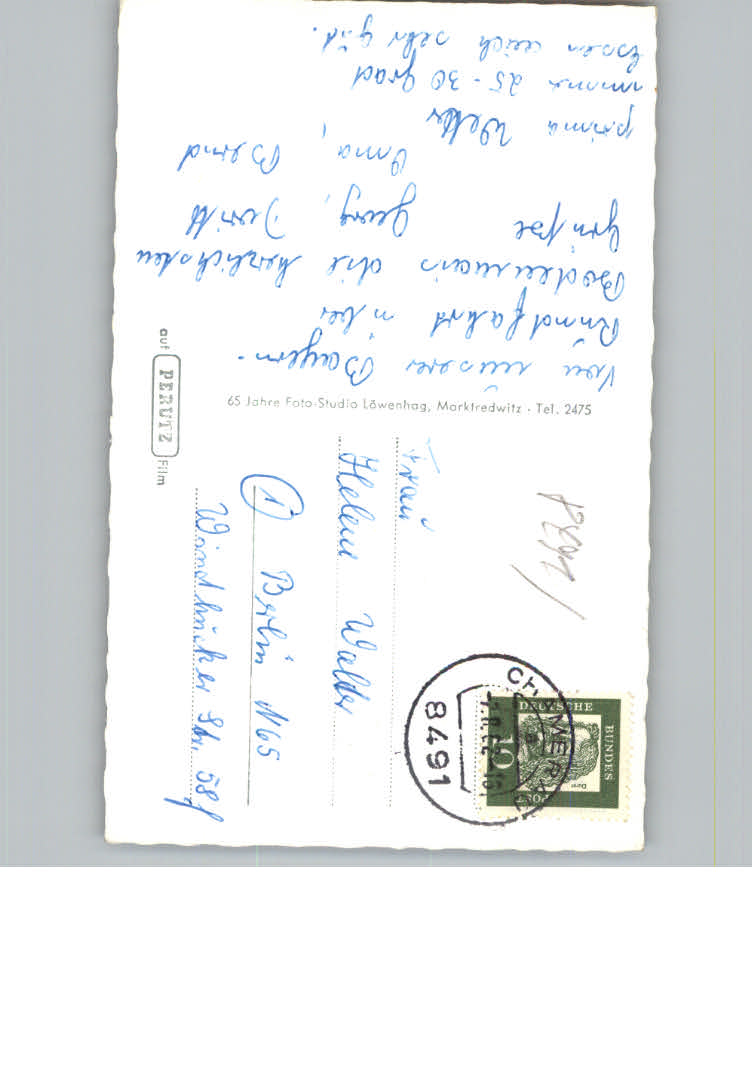 Von unserer Bayern-
Rundfahrt über
Bodenmais die herzlichsten
Grüße Georg,
Oma, Bernd
prima Wetter
immer 25-30 Grad
Essen auch sehr gut.
65 Jahre Foto-Studio Löwenhag, Marktredwitz · Tel. 2475
auf PERUTZ Film
Frau
Helene Walder
① Berlin N65
Str. 58
8491
DEUTSCHE
BUNDES
POST
10